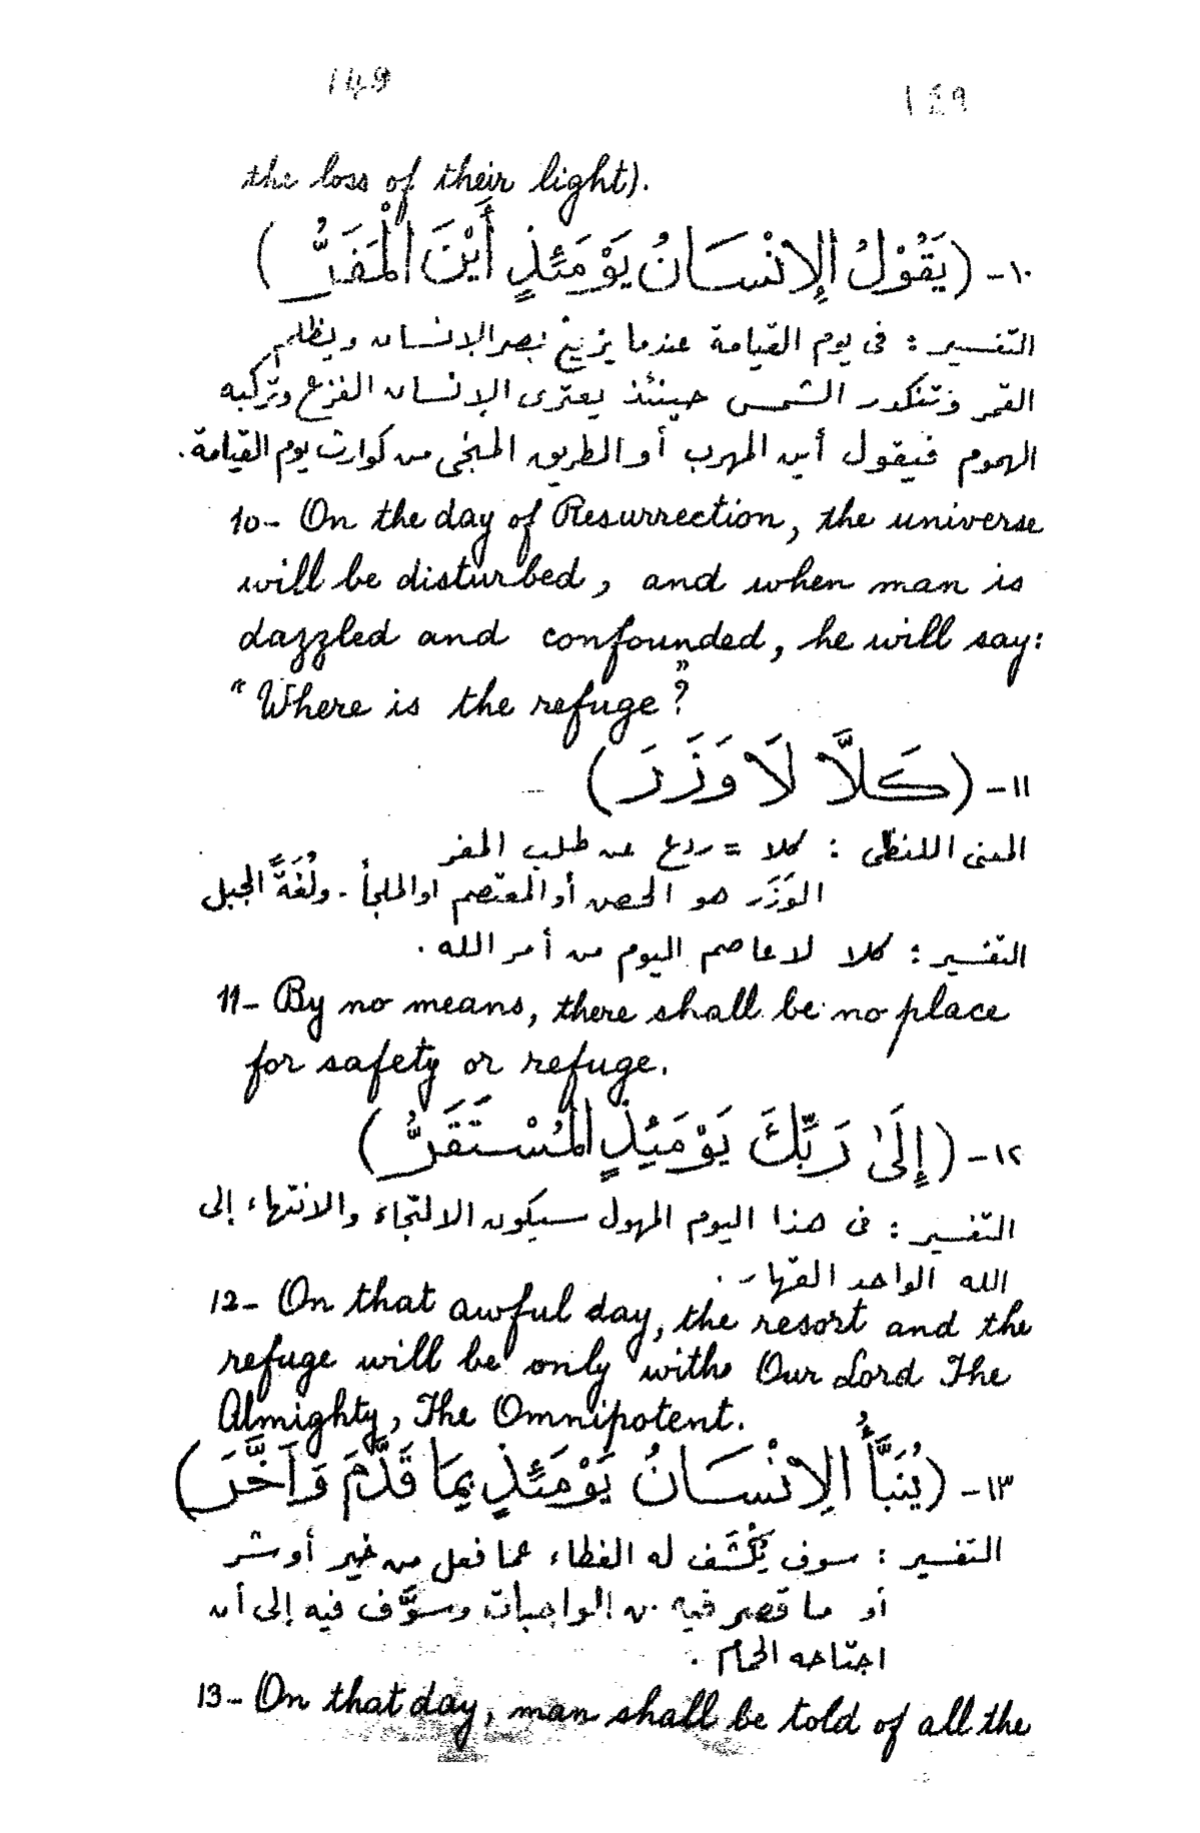 149
١٤٩
the loss of their light).
١٠- (يَقُوْلُ الإِنْسَانُ يَوْمَئِذٍ أَيْنَ الْمَفَرُّ)
التفسير : فى يوم القيامة عندما يزيغ بصر الإنسان ويظلم
القمر وتنكدر الشمس حينئذ يعترى الإنسان الفزع وتركبه
الهموم فيقول أين المهرب أو الطريق المنجى من كوارث يوم القيامة.
10- On the day of Resurrection, the universe
will be disturbed, and when man is
dazzled and confounded, he will say:
"Where is the refuge?"
١١- (كَلَّا لَا وَزَرَ)
المعنى اللفظى : كلا = ردع عن طلب المفر
الوَزَر هو الحصن أو المعتصم او الملجأ - ولُغَةً الجبل
التفسير : كلا لا عاصم اليوم من أمر الله .
11- By no means, there shall be no place
for safety or refuge.
١٢- (إِلَىٰ رَبِّكَ يَوْمَئِذٍ المُسْتَقَرُّ)
التفسير : فى هذا اليوم المهول سيكون الالتجاء والانتهاء إلى
الله الواحد القهار .
12- On that awful day, the resort and the
refuge will be only with Our Lord The
Almighty, The Omnipotent.
١٣- (يُنَبَّأُ الإِنْسَانُ يَوْمَئِذٍ بِمَا قَدَّمَ وَآخَّرَ)
التفسير : سوف يُكْشَف له الغطاء عما فعل من خير أو شر
أو ما قصر فيه من الواجبات وسوَّف فيه إلى أن
اجتاحه الحمام .
13- On that day, man shall be told of all the